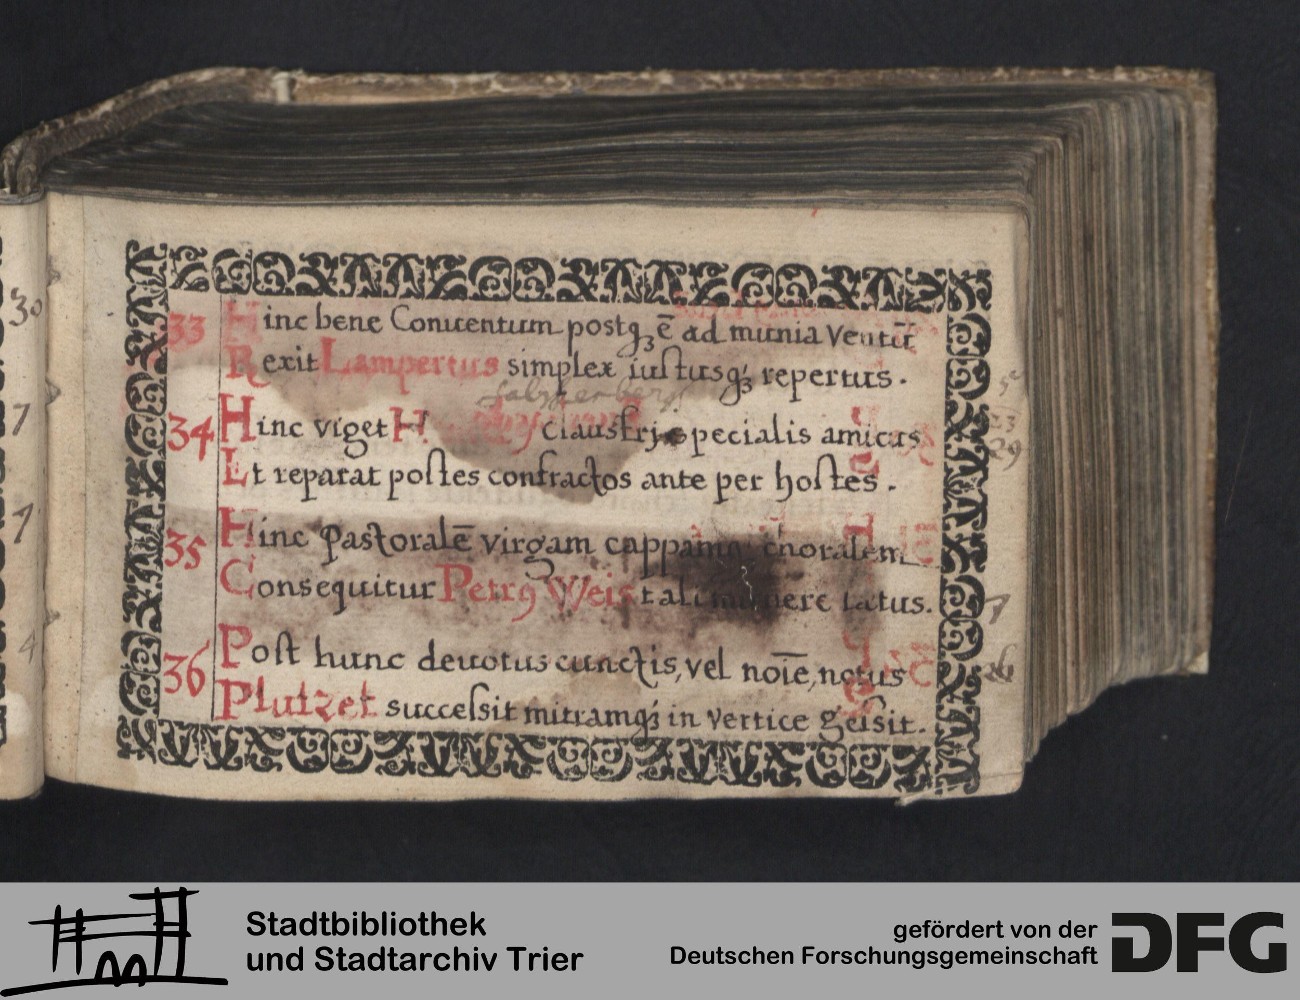 30
7
7
4
33 Hinc bene Conuentum postqꝫ ē ad munia ventū
Rexit Lampertus simplex iustusqꝫ repertus.
34 Hinc viget H claustrj specialis amicus
Et reparat postes confractos ante per hostes.
23
29
35 Hinc Pastoralē virgam cappamqꝫ choralem
Consequitur Petrꝯ Weis tali munere latus.
7
36 Post hunc deuotus cunctis, vel noīe, notus
26
Plutzet successit mitramqꝫ in vertice gessit.
Stadtbibliothek
und Stadtarchiv Trier
gefördert von der
Deutschen Forschungsgemeinschaft
DFG